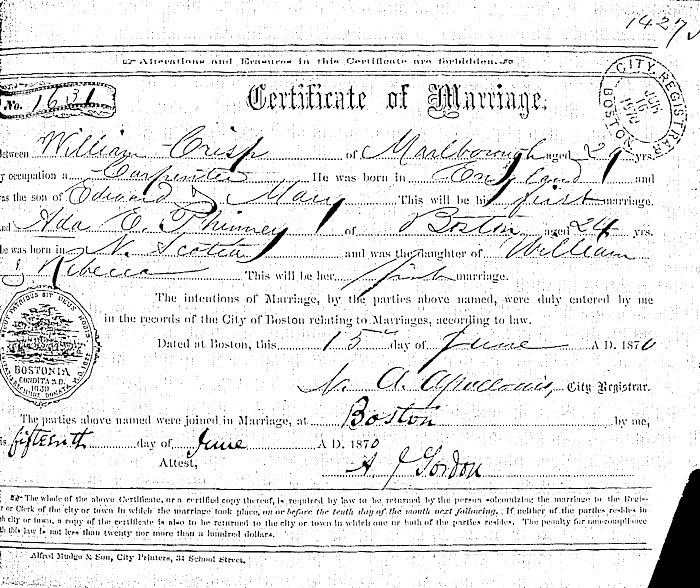 1427
Alterations and Erasures in this Certificate are forbidden.
No. 1631 Certificate of Marriage.
CITY REGISTRAR BOSTON JUN 16 1870
etween William Crisp of Marlborough aged yrs.
y occupation a Carpenter He was born in England and
as the son of Edward & Mary This will be his first marriage.
And Ada E. Phinney of Boston aged 24 yrs.
he was born in N. Scotia and was the daughter of William
& Rebecca This will be her first marriage.
The intentions of Marriage, by the parties above named, were duly entered by me
in the records of the City of Boston relating to Marriages, according to law.
Dated at Boston, this 15 day of June A.D. 1870
BOSTONIA
CONDITA A.D.
1630
N. A. Apollonio, City Registrar.
The parties above named were joined in Marriage, at Boston by me,
is fifteenth day of June A.D. 1870
Attest, A J Gordon
The whole of the above Certificate, or a certified copy thereof, is required by law to be returned by the person solemnizing the marriage to the Regis-
r or Clerk of the city or town in which the marriage took place, on or before the tenth day of the month next following. If neither of the parties resides in
h city or town, a copy of the certificate is also to be returned to the city or town in which one or both of the parties resides. The penalty for non-compliance
h this law is not less than twenty nor more than a hundred dollars.
Alfred Mudge & Son, City Printers, 34 School Street.